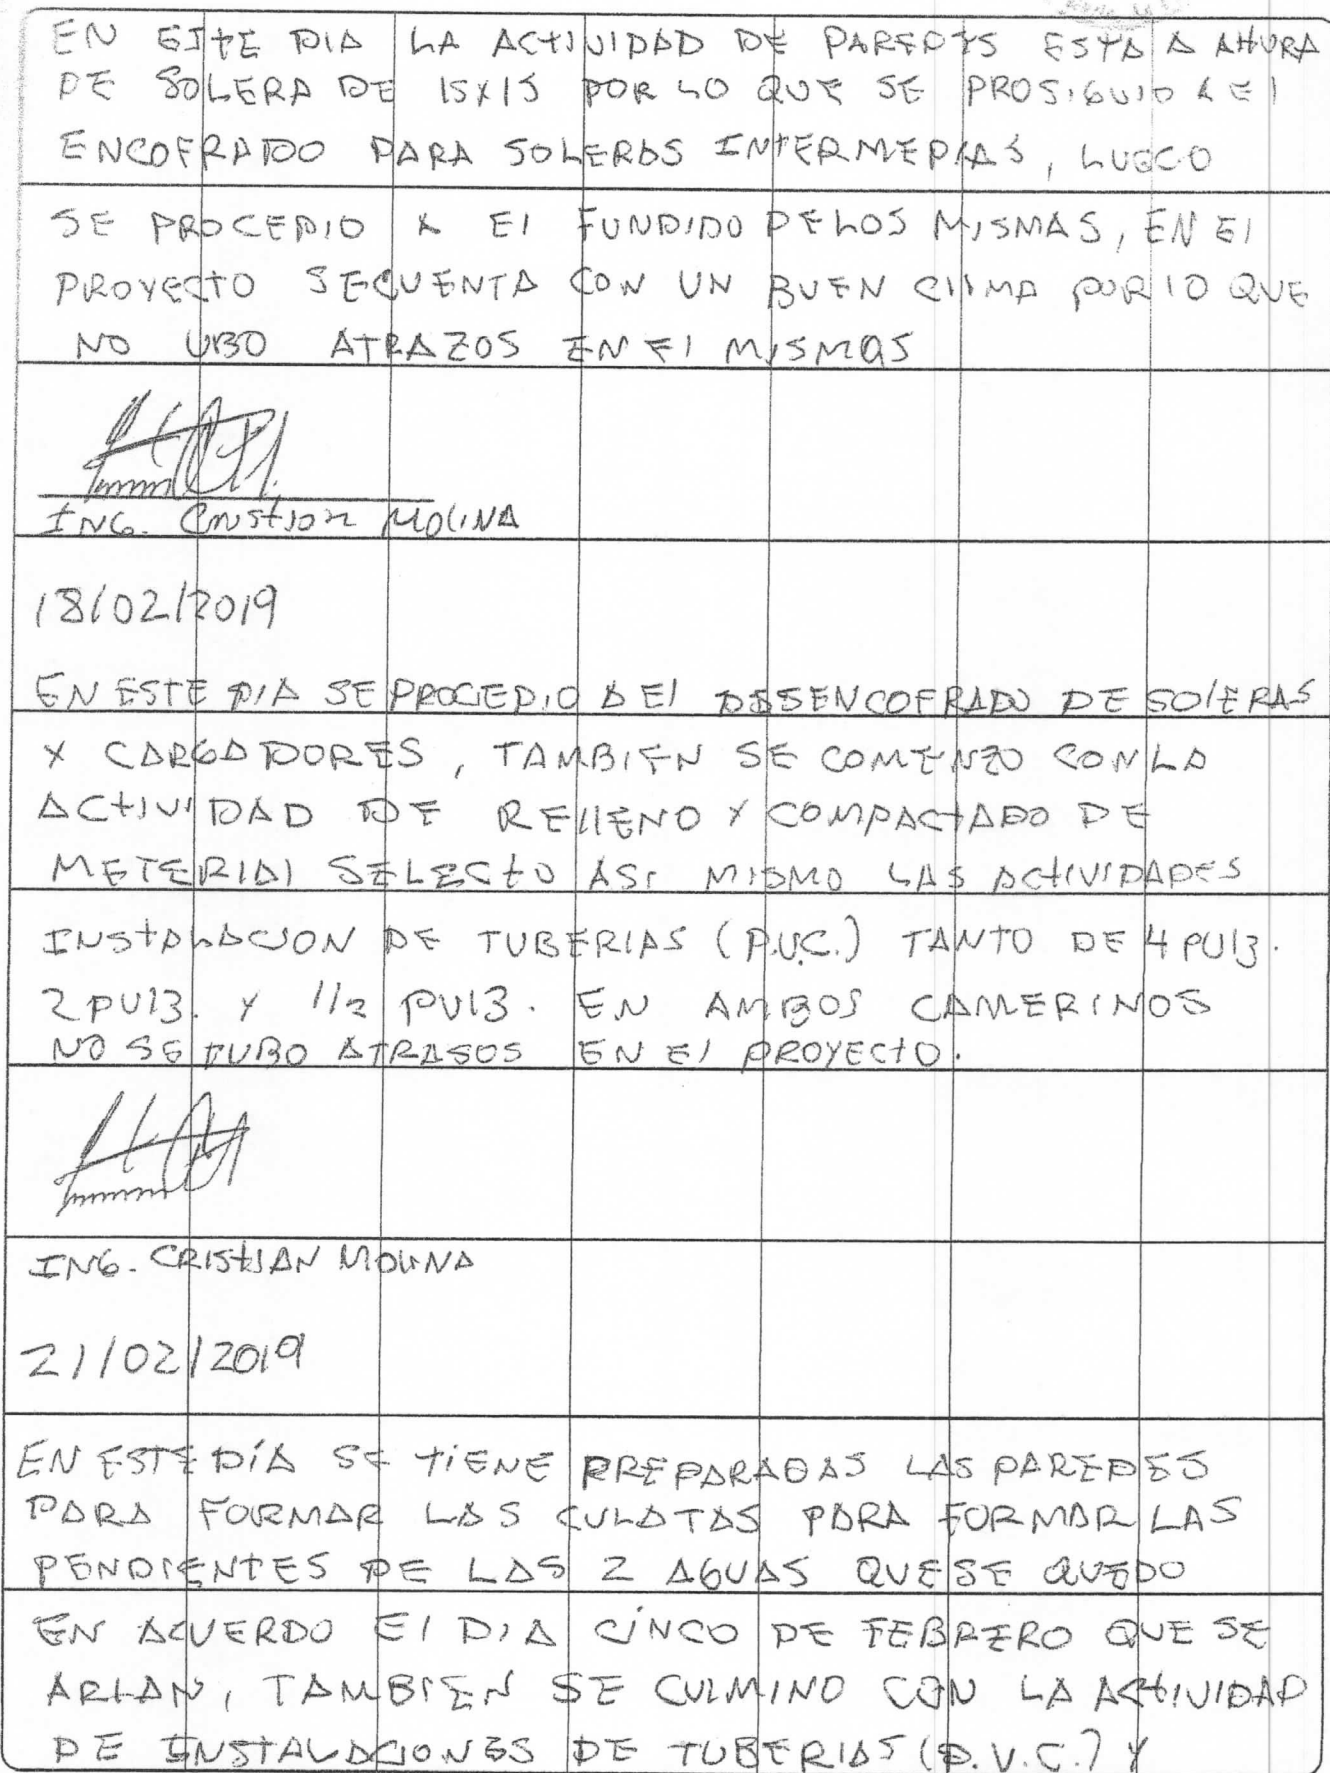 EN ESTE DIA LA ACTIVIDAD DE PAREDES ESTA A AHURA
DE SOLERA DE 15X15 POR LO QUE SE PROSIGUIO A El
ENCOFRADO PARA SOLERAS INTERMEDIAS, LUEGO
SE PROCEDIO A El FUNDIDO DE LOS MISMAS, EN El
PROYECTO SE CUENTA CON UN BUEN ClIMA POR lO QUE
NO UBO ATRAZOS EN El MISMOS
ING. Cristian MOLINA
18/02/2019
EN ESTE DIA SE PROCEDIO A El DESENCOFRADO DE SOlERAS
Y CARGADORES, TAMBIEN SE COMENZO CON LA
ACTIVIDAD DE REllENO Y COMPACTADO DE
METERIAl SELECTO ASI MISMO LAS ACTIVIDADES
INSTALACION DE TUBERIAS (P.V.C.) TANTO DE 4 PUlg.
2 PUlg. Y 1/2 PUlg. EN AMBOS CAMERINOS
NO SE TUBO ATRASOS EN El PROYECTO.
ING. CRISTIAN MOLINA
21/02/2019
EN ESTE DÍA SE TIENE PREPARADAS LAS PAREDES
PARA FORMAR LAS CULATAS PARA FORMAR LAS
PENDIENTES DE LAS 2 AGUAS QUE SE QUEDO
EN ACUERDO El DIA CINCO DE FEBRERO QUE SE
ARIAN, TAMBIEN SE CULMINO CON LA ACTIVIDAD
DE INSTALACIONES DE TUBERIAS (P.V.C.) Y